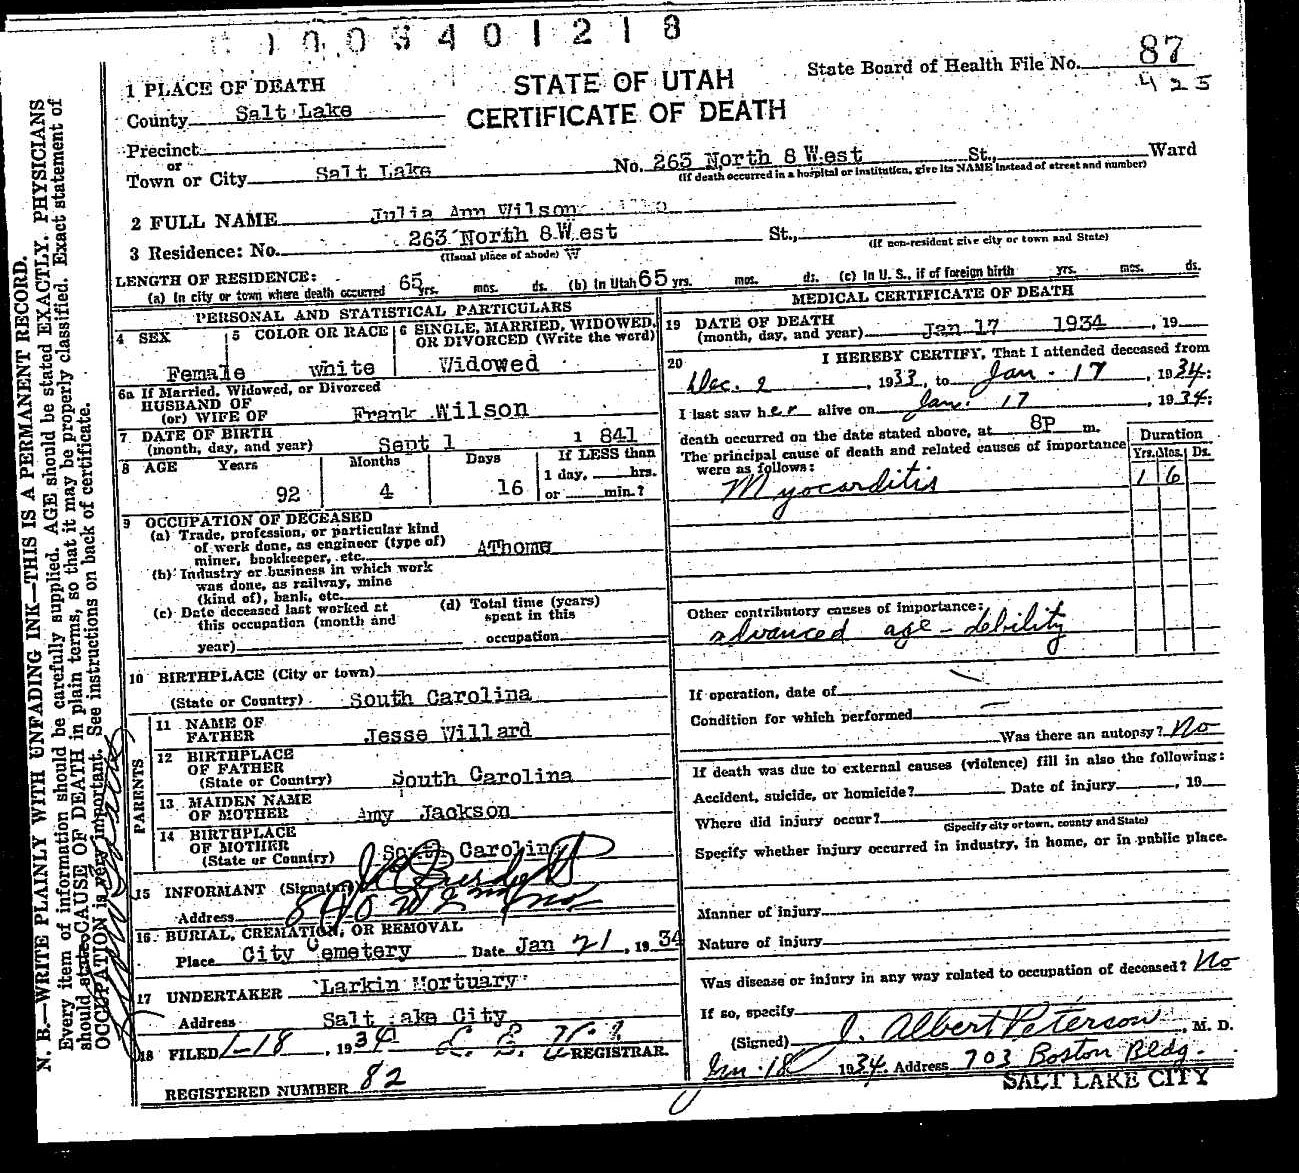 1003401218
STATE OF UTAH
CERTIFICATE OF DEATH
State Board of Health File No. 87
425
1 PLACE OF DEATH
County Salt Lake
Precinct
or
Town or City Salt Lake No. 263 North 8 West St., Ward
(If death occurred in a hospital or institution, give its NAME instead of street and number)
2 FULL NAME Julia Ann Wilson
3 Residence: No. 263 North 8 West St.,
(Usual place of abode) W (If non-resident give city or town and State)
LENGTH OF RESIDENCE:
(a) In city or town where death occurred 65 yrs. mos. ds. (b) In Utah 65 yrs. mos. ds. (c) In U. S., if of foreign birth yrs. mos. ds.
PERSONAL AND STATISTICAL PARTICULARS
4 SEX Female
5 COLOR OR RACE White
6 SINGLE, MARRIED, WIDOWED, OR DIVORCED (Write the word) Widowed
6a If Married, Widowed, or Divorced
HUSBAND OF
(or) WIFE OF Frank Wilson
7 DATE OF BIRTH
(month, day, and year) Sept 1 1841
8 AGE Years 92 Months 4 Days 16 If LESS than
1 day, hrs.
or min.?
9 OCCUPATION OF DECEASED
(a) Trade, profession, or particular kind
of work done, as engineer (type of)
miner, bookkeeper, etc. AThome
(b) Industry or business in which work
was done, as railway, mine
(kind of), bank, etc.
(c) Date deceased last worked at
this occupation (month and
year)
(d) Total time (years)
spent in this
occupation
10 BIRTHPLACE (City or town)
(State or Country) South Carolina
PARENTS
11 NAME OF
FATHER Jesse Willard
12 BIRTHPLACE
OF FATHER
(State or Country) South Carolina
13 MAIDEN NAME
OF MOTHER Amy Jackson
14 BIRTHPLACE
OF MOTHER
(State or Country) South Carolina
15 INFORMANT (Signature)
Address 840 W
16 BURIAL, CREMATION, OR REMOVAL
Place City Cemetery Date Jan 21, 1934
17 UNDERTAKER Larkin Mortuary
Address Salt Lake City
18 FILED 1-18, 1934 REGISTRAR.
REGISTERED NUMBER 82
MEDICAL CERTIFICATE OF DEATH
19 DATE OF DEATH
(month, day, and year) Jan 17 1934, 19
20 I HEREBY CERTIFY, That I attended deceased from
Dec. 2, 1933, to Jan. 17, 1934:
I last saw her alive on Jan. 17, 1934:
death occurred on the date stated above, at 8P m.
The principal cause of death and related causes of importance
were as follows:
Duration
Yrs. Mos. Ds.
Myocarditis 1 6
Other contributory causes of importance:
advanced age - debility
If operation, date of
Condition for which performed
Was there an autopsy? No
If death was due to external causes (violence) fill in also the following:
Accident, suicide, or homicide? Date of injury, 19
Where did injury occur?
(Specify city or town, county and State)
Specify whether injury occurred in industry, in home, or in public place.
Manner of injury
Nature of injury
Was disease or injury in any way related to occupation of deceased? No
If so, specify
(Signed) J. Albert Peterson, M. D.
Jan. 18 1934. Address 703 Boston Bldg.
SALT LAKE CITY
N. B.—WRITE PLAINLY WITH UNFADING INK—THIS IS A PERMANENT RECORD.
Every item of information should be carefully supplied. AGE should be stated EXACTLY. PHYSICIANS
should state CAUSE OF DEATH in plain terms, so that it may be properly classified. Exact statement of
OCCUPATION is very important. See instructions on back of certificate.